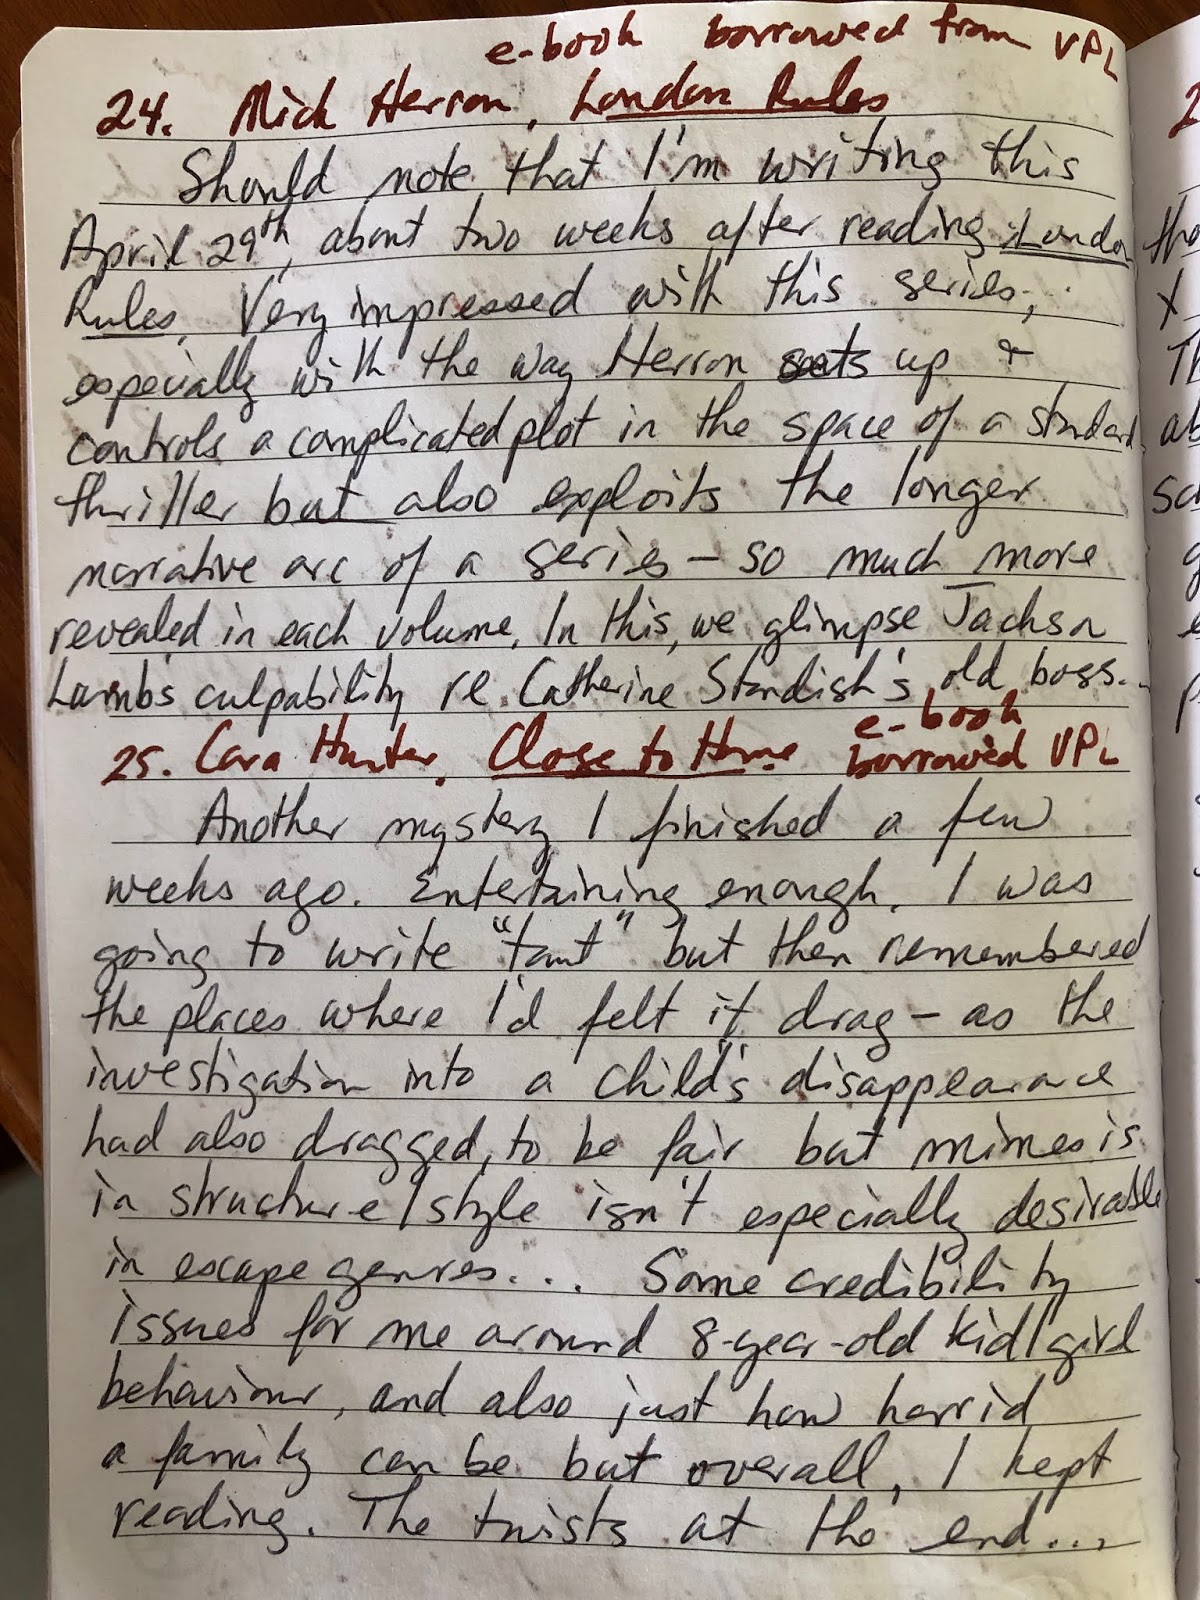 e-book borrowed from VPL
24. Mick Herron, London Rules
Should note that I'm writing this
April 29th, about two weeks after reading London
Rules. Very impressed with this series,
especially with the way Herron sets up +
controls a complicated plot in the space of a standard
thriller but also exploits the longer
narrative arc of a series - so much more
revealed in each volume. In this, we glimpse Jackson
Lamb's culpability re Catherine Standish's old boss...
25. Cara Hunter. Close to Home e-book
borrowed VPL
Another mystery I finished a few
weeks ago. Entertaining enough. I was
going to write "taut" but then remembered
the places where I'd felt it drag - as the
investigation into a child's disappearance
had also dragged, to be fair but mimesis
in structure/style isn't especially desirable
in escape genres... Some credibility
issues for me around 8-year-old kid/girl
behaviour, and also just how horrid
a family can be but overall, I kept
reading. The twists at the end...